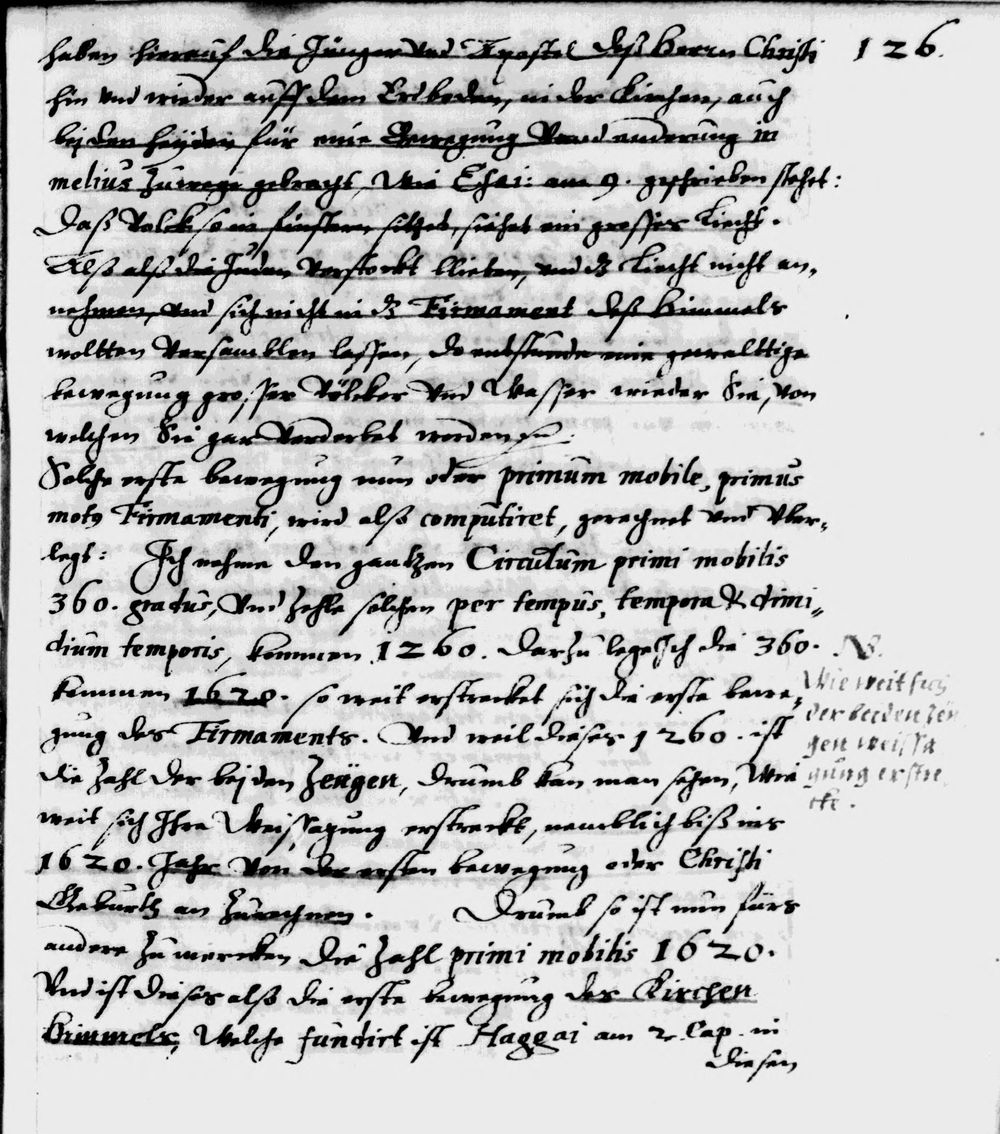 126.
haben hierauf die Jünger vnd Apostel deß Herrn Christi
hin vnd wieder auff dem Erdboden, in der Kirchen, auch
bej den Heÿden für eine Bewegung vnnd anderung in
melius zuwege gebracht, Wie Esai: am 9. geschrieben stehet:
Daß Volck so in finstern sitzet, siehet ein grosses Liecht.
Alß alß die Juden verstockt blieben, vnd dz Liecht nicht an-
nehmen, vnd sich nicht in dz Firmament deß Himmels
woltten versamblen lassen, do entstunde eine gewalttige
bewegung grosser Völcker vnd Wasser wieder Sie, von
welchen Sie gar verderbet worden
Solche erste bewegung nun oder primum mobile, primus
motus Firmamenti, wird alß computiret, gerechnet vnd vber-
legt: Ich nehme den gantzen Circulum primi mobilis
360. gradus, vnd zehle solchen per tempus, tempora & dimi-
dium temporis, kommen 1260. Darzu lege Ich die 360.
kommen 1620. so weit erstrecket sich die erste bewe-
gung des Firmaments. Vnd weil dieses 1260. ist
die Zahl der bejden Zeügen, drumb kan man sehen, Wie
weit sich Ihre Weissagung erstreckt, nemblich biß ins
1620. Jahr von der ersten bewegung oder Christi
Geburth an zurechnen. Drumb so ist nun fürs
andere zu mercken die Zahl primi mobilis 1620.
Vnd ist dieses alß die erste bewegung des Kirchen
Himmels, Welche fundirt ist Haggai am 2. Cap. in
diesen
NB.
Wie weit sich
der beeden Zeu
gen weissa
gung erstre
cke.